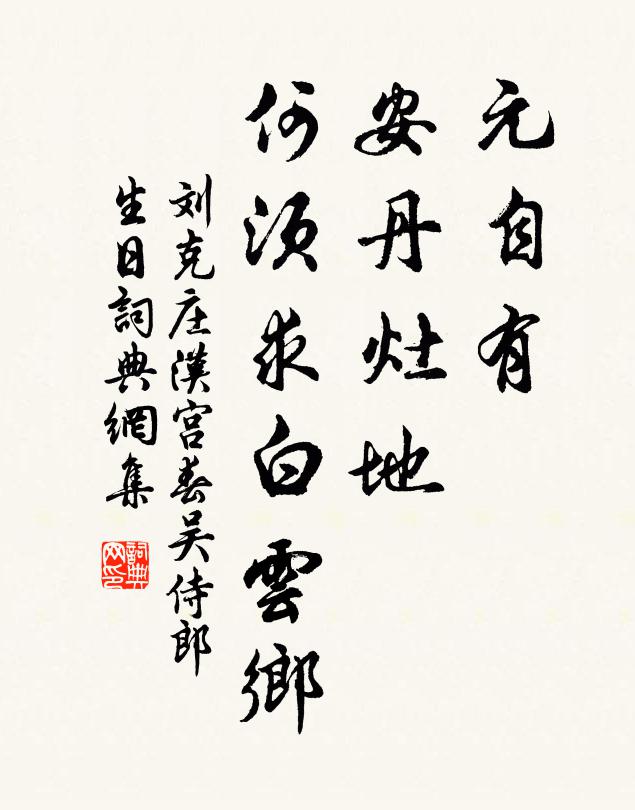 元自有
安丹灶地
何須求白雲鄉
刘克庄漢宮春吴侍郎
生日詞典網集
詞典
网印